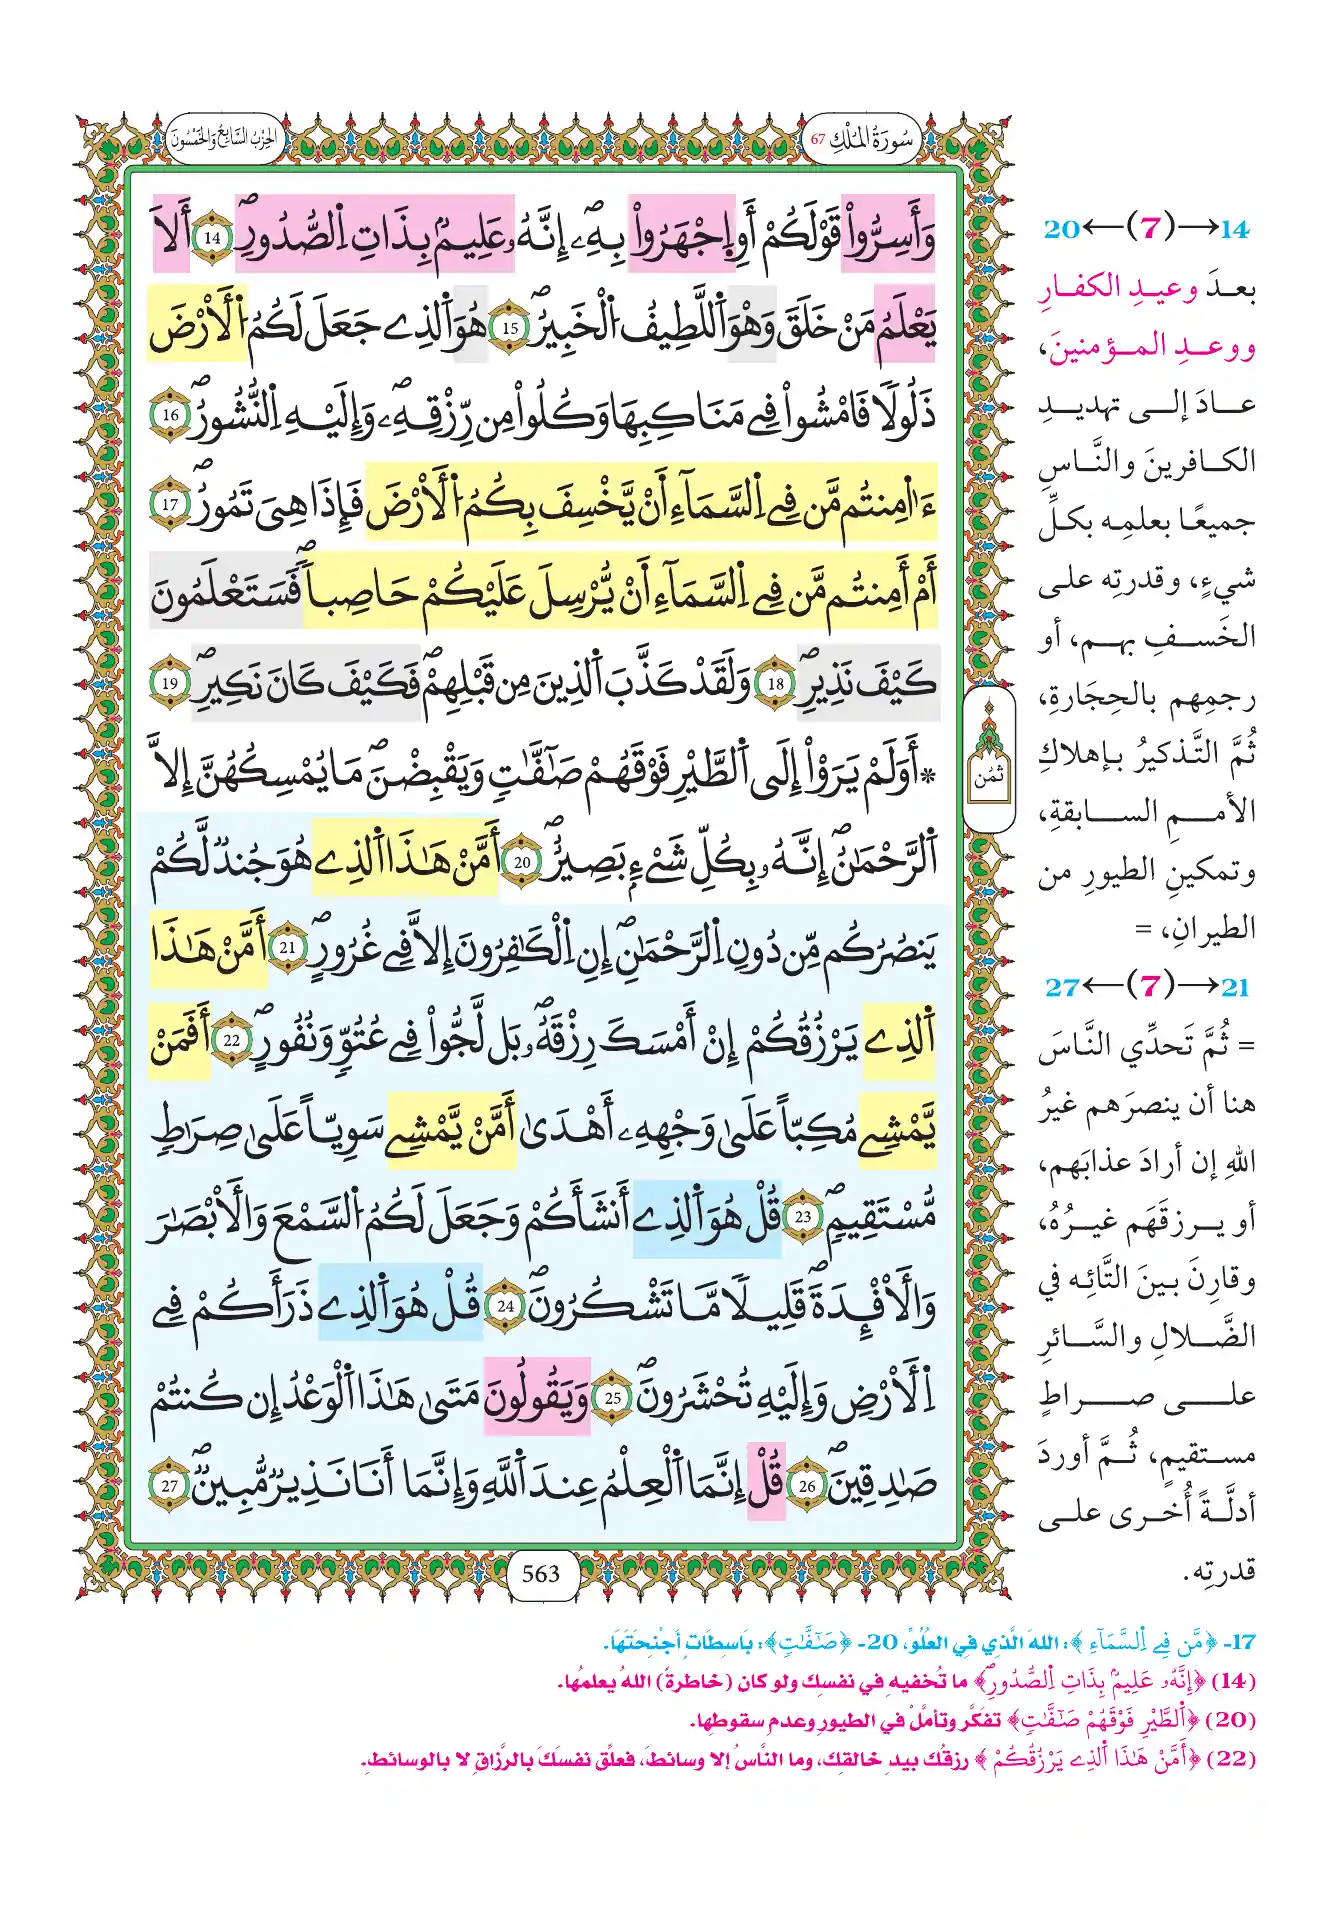 سُورَةُ المُلْكِ 67
الحِزْبُ السَّابِعُ وَالخَمْسُونَ
وَأَسِرُّواْ قَوْلَكُمْ أَوِ اِجْهَرُواْ بِهِۦٓۖ إِنَّهُۥ عَلِيمُۢ بِذَاتِ اِ۬لصُّدُورِۖ 14 أَلَا
يَعْلَمُ مَنْ خَلَقَ وَهْوَ اَ۬للَّطِيفُ اُ۬لْخَبِيرُۖ 15 هُوَ اَ۬لذِے جَعَلَ لَكُمُ اُ۬لَارْضَ
ذَلُولاٗ فَامْشُواْ فِے مَنَاكِبِهَا وَكُلُواْ مِن رِّزْقِهِۦۖ وَإِلَيْهِ اِ۬لنُّشُورُۖ 16
ءَاٰمِنتُم مَّن فِے اِ۬لسَّمَآءِ اَ۬نْ يَّخْسِفَ بِكُمُ اُ۬لَارْضَ فَإِذَا هِىَ تَمُورُۖ 17
أَمْ أَمِنتُم مَّن فِے اِ۬لسَّمَآءِ اَ۬نْ يُّرْسِلَ عَلَيْكُمْ حَاصِباٗۖ فَسَتَعْلَمُونَ
كَيْفَ نَذِيرِۖ 18 وَلَقَدْ كَذَّبَ اَ۬لذِينَ مِن قَبْلِهِمْۖ فَكَيْفَ كَانَ نَكِيرِۖ 19
* أَوَلَمْ يَرَوِاْ اِلَى اَ۬لطَّيْرِ فَوْقَهُمْ صَٰٓفَّٰتٖ وَيَقْبِضْنَۖ مَا يُمْسِكُهُنَّ إِلَّا
اَ۬لرَّحْمَٰنُۖ إِنَّهُۥ بِكُلِّ شَےْءِۢ بَصِيرٌۖ 20 أَمَّنْ هَٰذَا اَ۬لذِے هُوَ جُندٞ لَّكُمْ
يَنصُرُكُم مِّن دُونِ اِ۬لرَّحْمَٰنِۖ إِنِ اِ۬لْكَٰفِرُونَ إِلَّا فِے غُرُورٍۖ 21 أَمَّنْ هَٰذَا
اَ۬لذِے يَرْزُقُكُمْ إِنْ أَمْسَكَ رِزْقَهُۥۖ بَل لَّجُّواْ فِے عُتُوّٖ وَنُفُورٍۖ 22 أَفَمَنْ
يَّمْشِے مُكِبّاً عَلَىٰ وَجْهِهِۦٓ أَهْدَىٰٓ أَمَّنْ يَّمْشِے سَوِيّاً عَلَىٰ صِرَٰطٖ
مُّسْتَقِيمٖۖ 23 قُلْ هُوَ اَ۬لذِےٓ أَنشَأَكُمْ وَجَعَلَ لَكُمُ اُ۬لسَّمْعَ وَالَابْصَٰرَ
وَالَافْـِٕدَةَۖ قَلِيلاٗ مَّا تَشْكُرُونَۖ 24 قُلْ هُوَ اَ۬لذِے ذَرَأَكُمْ فِے
اِ۬لَارْضِ وَإِلَيْهِ تُحْشَرُونَۖ 25 وَيَقُولُونَ مَتَىٰ هَٰذَا اَ۬لْوَعْدُ إِن كُنتُمْ
صَٰدِقِينَۖ 26 قُلْ إِنَّمَا اَ۬لْعِلْمُ عِندَ اَ۬للَّهِ وَإِنَّمَآ أَنَا نَذِيرٞ مُّبِينٞۖ 27
ثمُن
563
20←(7)→14
بعدَ وعيدِ الكفارِ
ووعدِ المؤمنينَ،
عادَ إلى تهديدِ
الكافرينَ والنَّاسِ
جميعًا بعلمِه بكلِّ
شيءٍ، وقدرتِه على
الخَسفِ بهم، أو
رجمِهم بالحِجَارةِ،
ثُمَّ التَّذكيرُ بإهلاكِ
الأممِ السابقةِ،
وتمكينِ الطيورِ من
الطيرانِ، =
27←(7)→21
= ثُمَّ تَحدِّي النَّاسَ
هنا أن ينصرَهم غيرُ
اللهِ إن أرادَ عذابَهم،
أو يرزقَهَم غيرُهُ،
وقارنَ بينَ التَّائِه في
الضَّلالِ والسَّائرِ
على صراطٍ
مستقيمٍ، ثُمَّ أوردَ
أدلَّةً أُخرى على
قدرتِه.
17- ﴿مَّن فِے اِ۬لسَّمَآءِ﴾: اللهَ الَّذِي فِي العُلُوِّ، 20- ﴿صَٰٓفَّٰتٖ﴾: بَاسِطَاتٍ أَجْنِحَتَهَا.
(14) ﴿إِنَّهُۥ عَلِيمُۢ بِذَاتِ اِ۬لصُّدُورِۖ﴾ ما تُخفيهِ في نفسِك ولو كان (خاطرةً) اللهُ يعلمُها.
(20) ﴿اَ۬لطَّيْرِ فَوْقَهُمْ صَٰٓفَّٰتٖ﴾ تفكَّر وتأمَّلْ في الطيورِ وعدمِ سقوطِها.
(22) ﴿أَمَّنْ هَٰذَا اَ۬لذِے يَرْزُقُكُمْ﴾ رزقُك بيدِ خالقِك، وما النَّاسُ إلا وسائطَ، فعلِّق نفسَكَ بالرَّزاقِ لا بالوسائطِ.